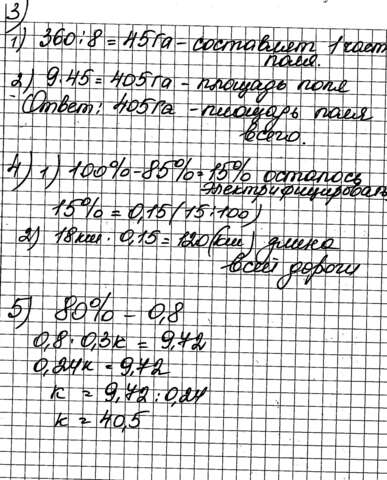 3)
1) 360:8=45га - составляет 1 част
поля.
2) 9·45=405га - площадь поля
Ответ: 405га - площадь поля
всего.
4) 1) 100%-85%=15% осталось
электрифицировать
15%=0,15(15:100)
2) 18км · 0,15=120(км) длина
всей дороги
5) 80% - 0,8
0,8·0,3к = 9,72
0,24к = 9,72
к = 9,72:0,24
к = 40,5